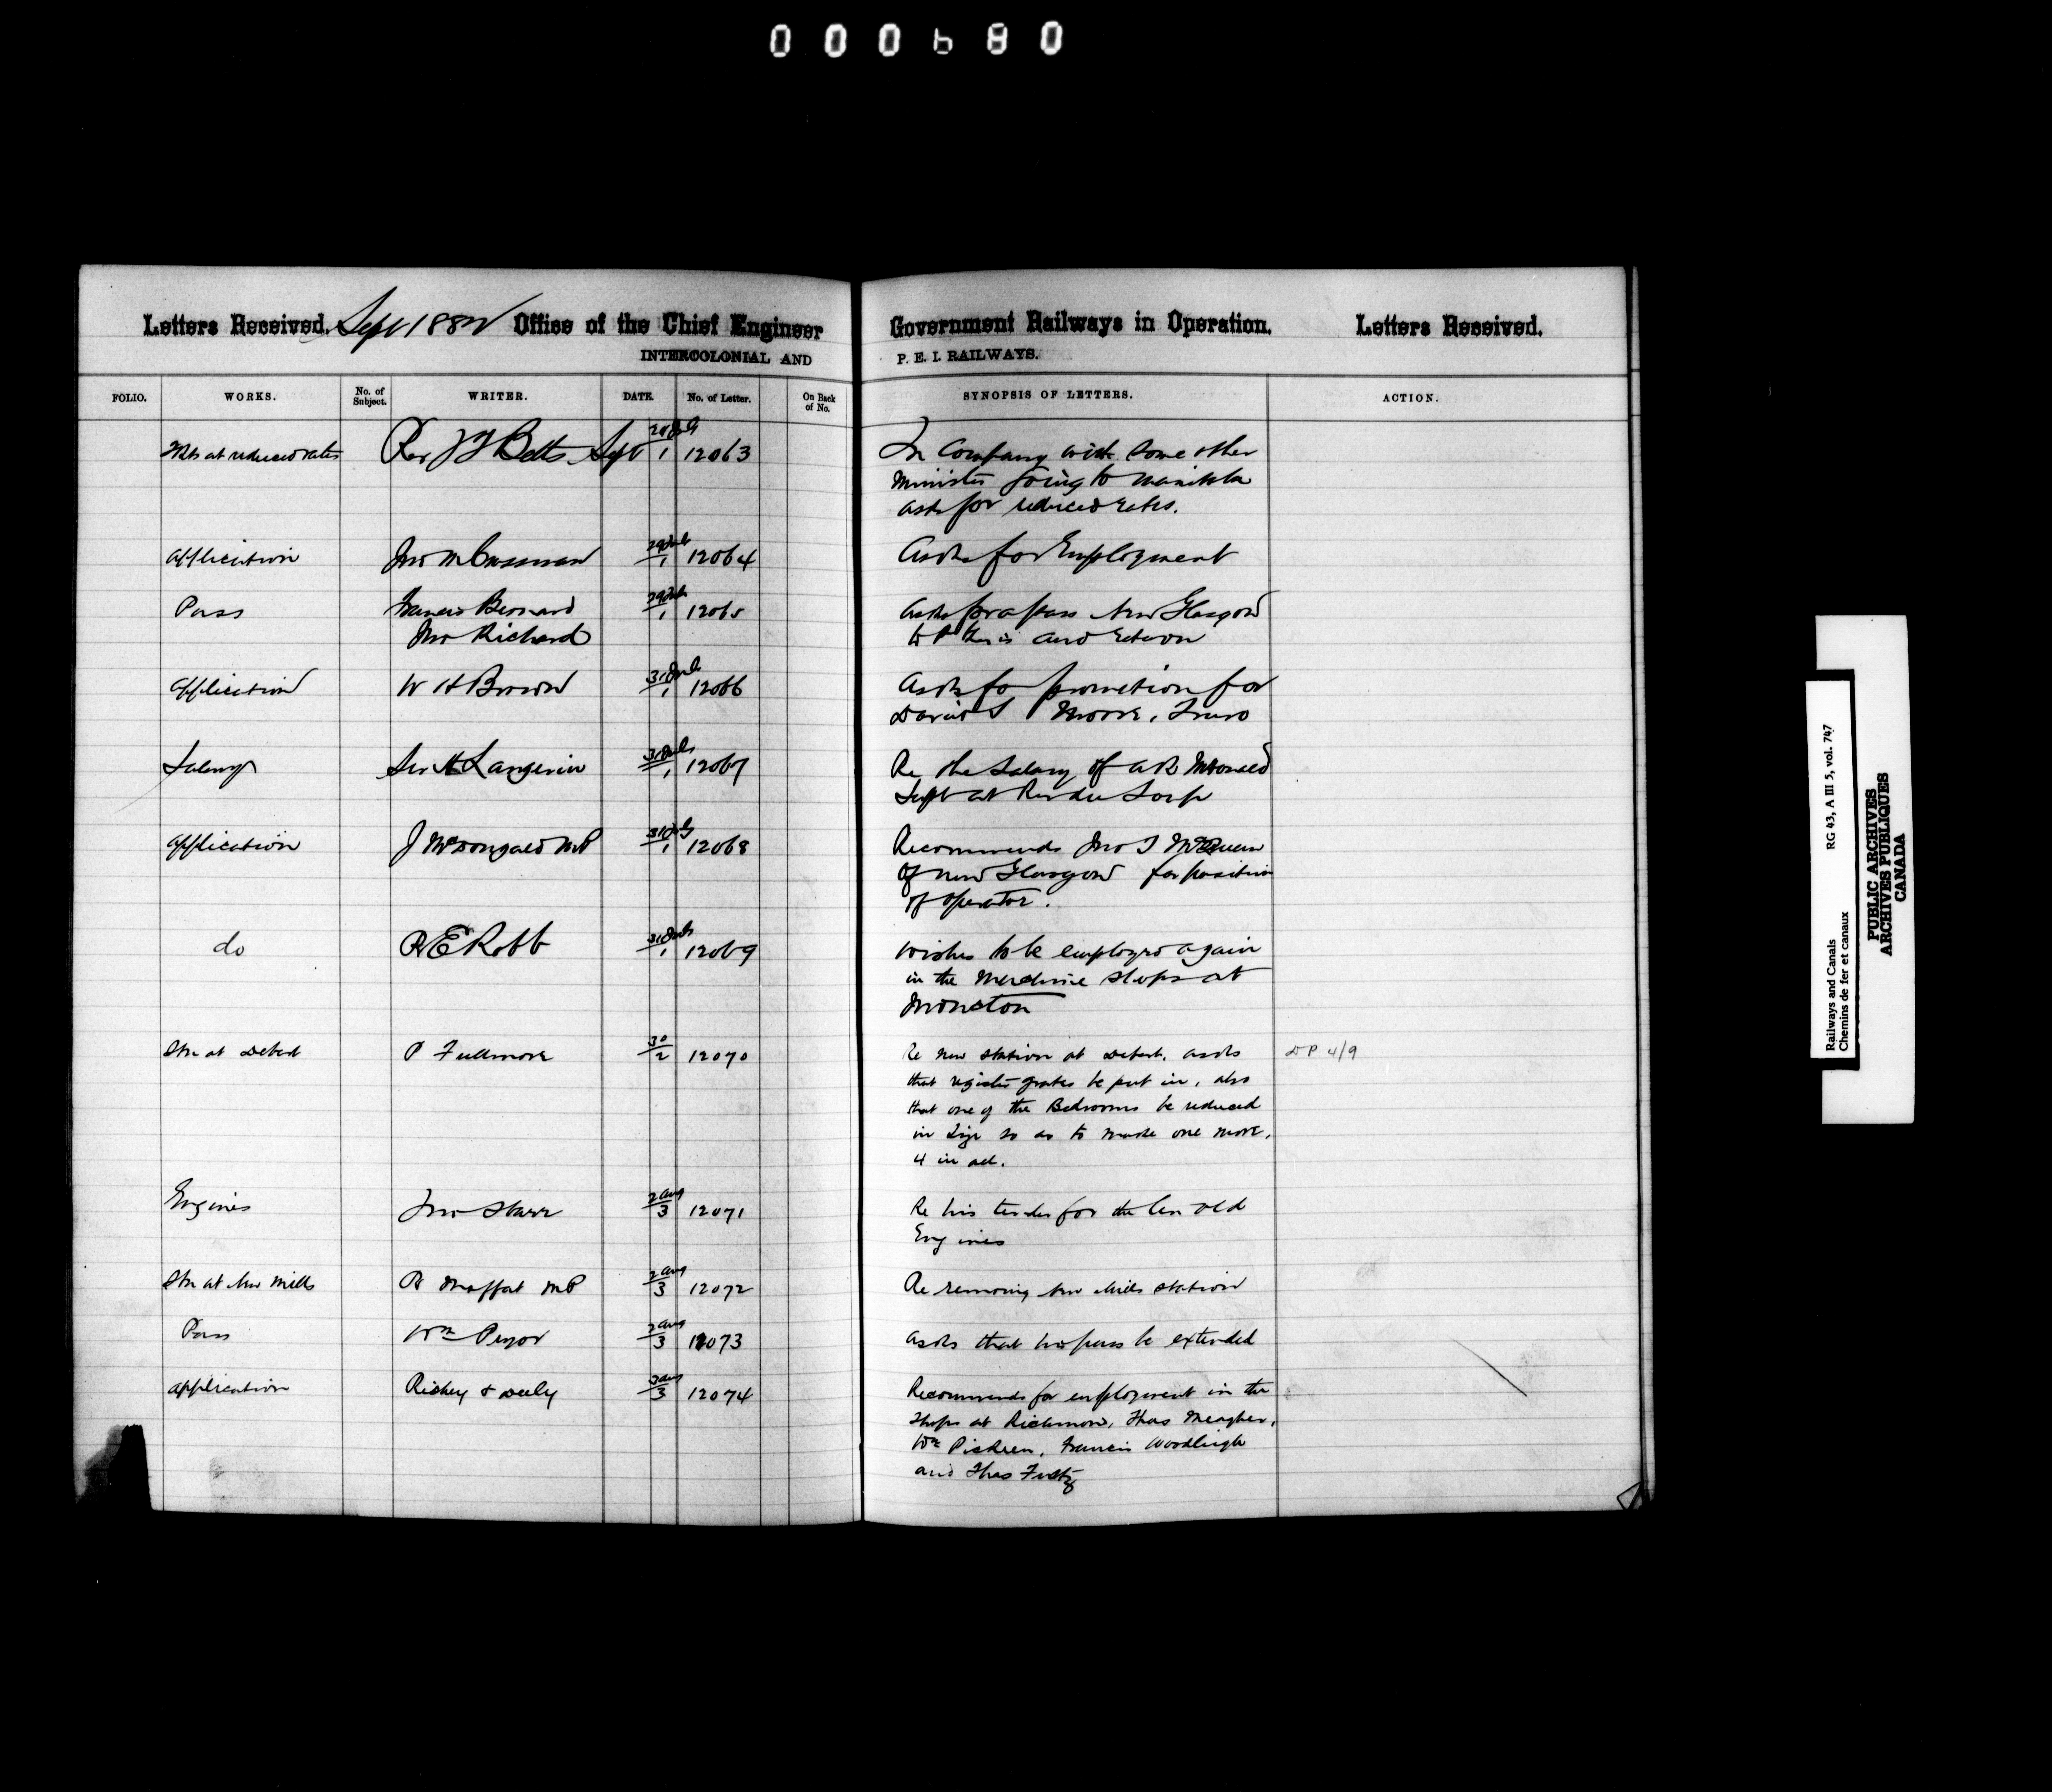 000680
Letters Received. Sept 1882 Office of the Chief Engineer Government Railways in Operation. Letters Received.
INTERCOLONIAL AND P. E. I. RAILWAYS.
FOLIO. WORKS. No. of Subject. WRITER. DATE. No. of Letter. On Back of No. SYNOPSIS OF LETTERS. ACTION.
Tkts at reduced rates Rev J F Betts Sept 1 12063 In Company with some other
Minister going to Manitoba
asks for reduced rates.
Application Jno 1 12064 Asks for Employment
Pass Francis Bernard 1 12065 Asks for a pass New Glasgow
Jno Richard to and return
Application W H Brown 31 1 12066 Asks for promotion for
David S Moore, Truro
Salary Sir H Langevin 31 1 12067 Re the Salary of A R McDonald
Supt at Riv du Loup
Application J McDougald MP 31 1 12068 Recommends Jno J McQueen
of New Glasgow for position
of operator.
do R E Robb 31 1 12069 Wishes to be employed again
in the Machine Shops at
Moncton
Stn at Debert P Fullmore 30/2 12070 Re new station at Debert, asks DP 4/9
that register grates be put in, also
that one of the Bedrooms be reduced
in size so as to make one more,
4 in all.
Engines Jno Starr 2 Aug 3 12071 Re his tender for the ten old
Engines
Stn at New Mills R Moffat MP 2 Aug 3 12072 Re removing New Mills station
Pass Wm Pryor 2 Aug 3 12073 asks that his pass be extended
application Richey & Deely Aug 3 12074 Recommends for employment in the
Shops at Richmond, Thos Meagher,
Wm Pickren, Francis Woodleigh
and Thos Fultz
Railways and Canals RG 43, A III 5, vol. 747
Chemins de fer et canaux
PUBLIC ARCHIVES
ARCHIVES PUBLIQUES
CANADA